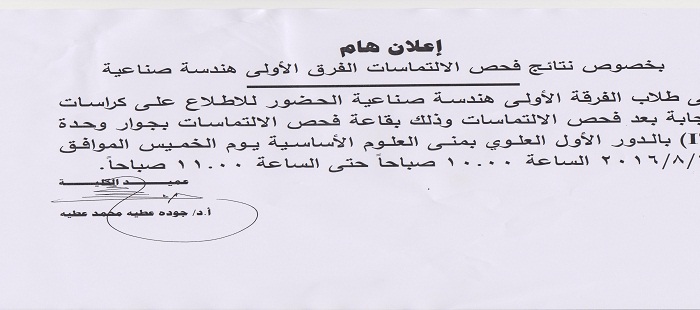 إعلان هام
بخصوص نتائج فحص الالتماسات الفرق الأولى هندسة صناعية
طلاب الفرقة الأولى هندسة صناعية الحضور للاطلاع على كراسات
بعد فحص الالتماسات وذلك بقاعة فحص الالتماسات بجوار وحدة
بالدور الأول العلوي بمنى العلوم الأساسية يوم الخميس الموافق
٢٠١٦/٨/ الساعة ١٠.٠٠ صباحاً حتى الساعة ١١.٠٠ صباحاً.
عميد الكلية
أ.د/ جوده عطيه محمد عطيه